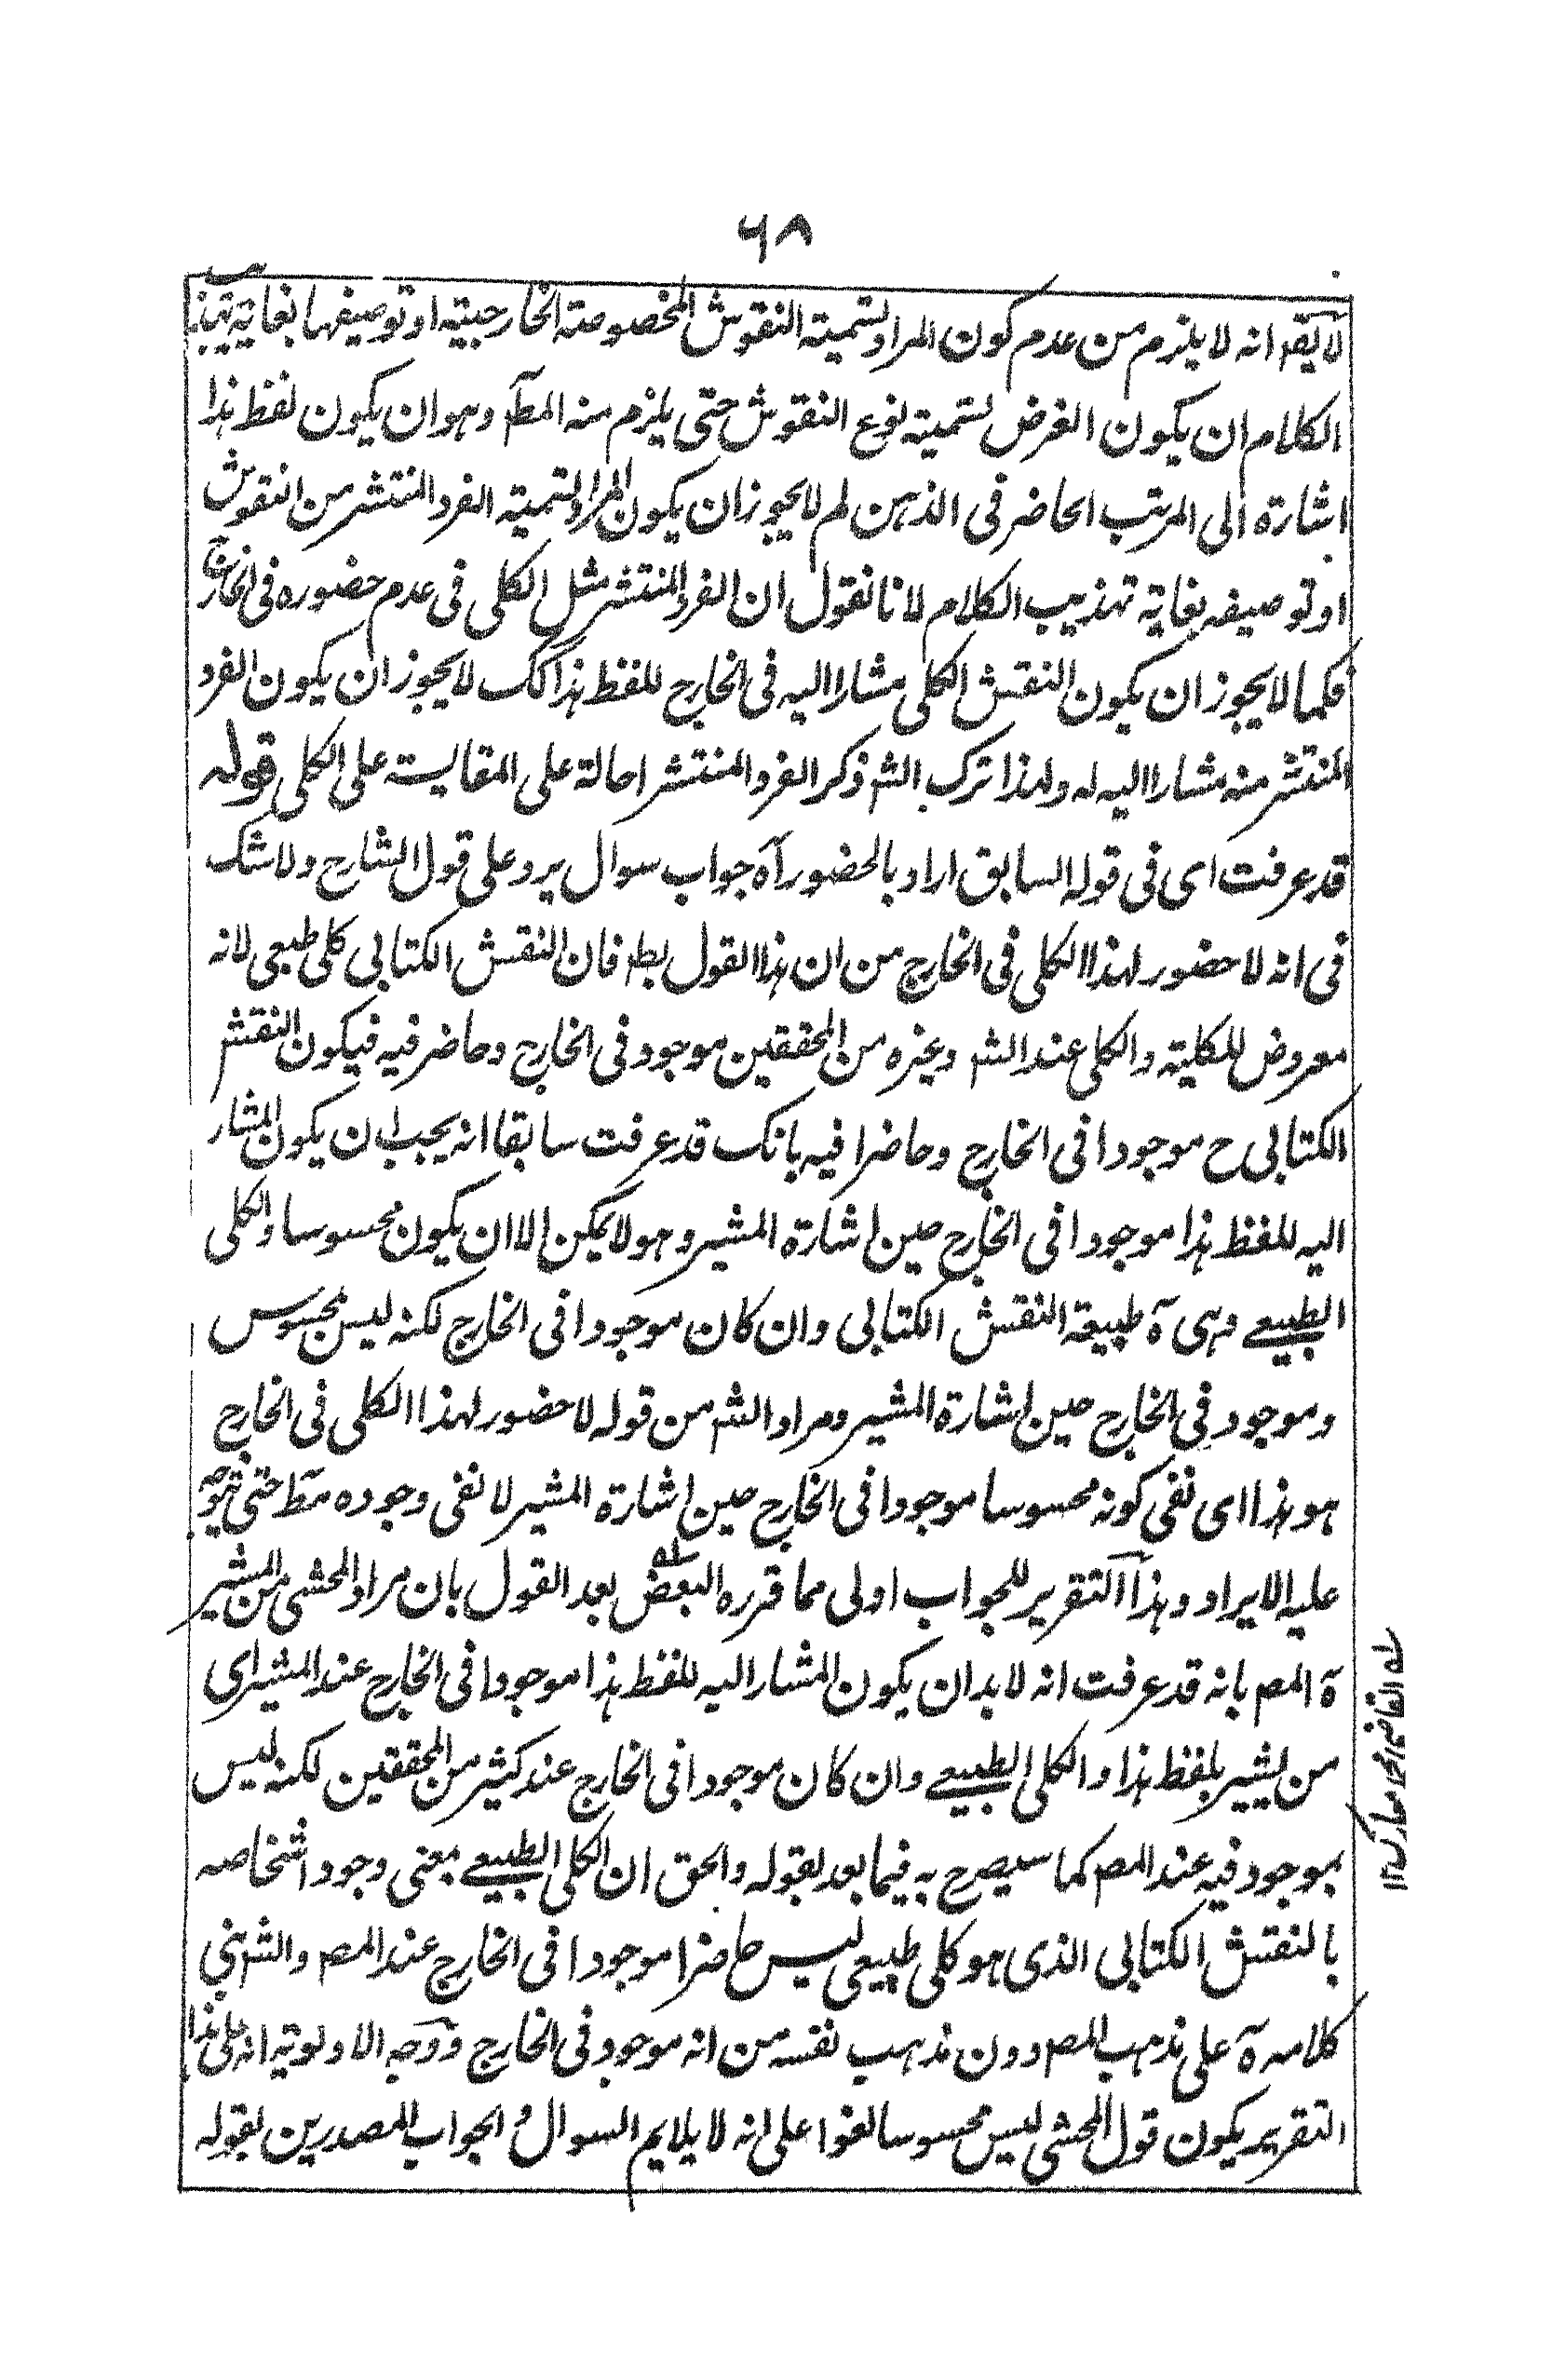 ٦٨
لا يقہ انه لا يلزم من عدم كون المراد تسمية النقوش المخصوصة الخارجية او توصيفها بغاية تهذيب
الكلام ان يكون الغرض تسمية نوع النقوش حتى يلزم منه المطآ وهو ان يكون لفظ هذا
اشارة الى المرتب الحاضر فى الذهن لم لا يجوز ان يكون المراد تسمية الفرد المنتشر من النقوش
او توصيفه بغاية تهذيب الكلام لانا نقول ان الفرد المنتشر مثل الكلى فى عدم حضوره فى الخارج
فكما لا يجوز ان يكون النقش الكلى مشارا اليه فى الخارج للفظ هذا كك لا يجوز ان يكون الفرد
المنتشر منه مشارا اليه له ولهذا ترك الشہ ذكر الفرد المنتشر احالة على المقايسة على الكلى قوله
قد عرفت اى فى قوله السابق اراد بالحضور آه جواب سوال يرد على قول الشارح ولا شك
فى انه لا حضور لهذا الكلى فى الخارج من ان هذا القول بط فان النقش الكتابى كلى طبيعى لانه
معروض للكلية والكلى عند الشہ وغيره من المحققين موجود فى الخارج وحاضر فيه فيكون النقش
الكتابى ح موجودا فى الخارج وحاضرا فيه بانك قد عرفت سابقا انه يجب ان يكون المشار
اليه للفظ هذا موجودا فى الخارج حين اشارة المشير وهو لا يمكن الا ان يكون محسوسا والكلى
الطبيعے وهى ة طبيعة النقش الكتابى وان كان موجودا فى الخارج لكنه ليس بمحسوس
وموجود فى الخارج حين اشارة المشير ومراد الشہ من قوله لا حضور لهذا الكلى فى الخارج
هو هذا اى نفى كونه محسوسا موجودا فى الخارج حين اشارة المشير لا نفى وجوده مطآ حتى يتوجه
عليه الايراد وهذا التقرير للجواب اولى مما قرره البعض له بعد القول بان مراد المحشى من المشير
ة المص بانه قد عرفت انه لا بد ان يكون المشار اليه للفظ هذا موجودا فى الخارج عند المشير اى
من يشير بلفظ هذا والكلى الطبيعے وان كان موجودا فى الخارج عند كثير من المحققين لكنه ليس
بموجود فيه عند المص كما سيصرح به فيما بعد بقوله والحق ان الكلى الطبيعے بمعنى وجود اشخاصه
بالنقش الكتابى الذى هو كلى طبيعى ليس حاضرا موجودا فى الخارج عند المص والشہ بنى
كلامه ة على مذهب المص دون مذهب نفسه من انه موجود فى الخارج ووجه الاولوية انه على هذا
التقرير يكون قول المحشى ليس محسوسا لغوا على انه لا يلايم السوال والجواب المصدرين بقوله
له القاضى محمد مبارك ١٢